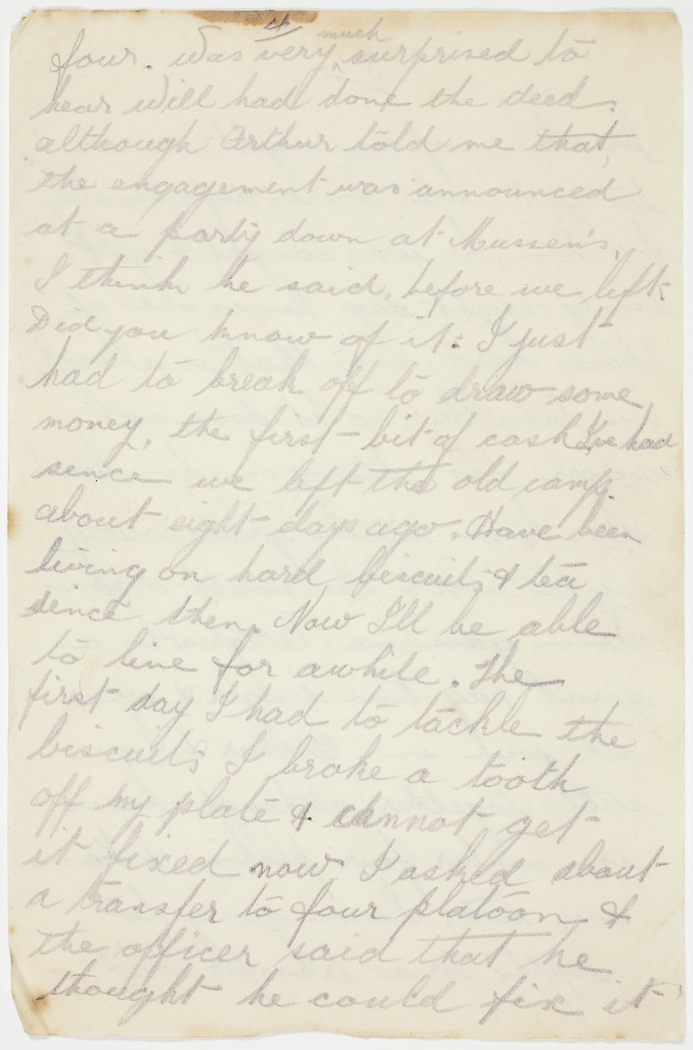 four. Was very much surprised to
hear Will had done the deed.
although Arthur told me that
the engagement was announced
at a party down at Mussen's,
I think he said, before we left
Did you know of it. I just
had to break off to draw some
money, the first bit of cash I've had
sence we left the old camp.
about eight days ago. Have been
living on hard biscuits & tea
sence then. Now I'll be able
to live for awhile. The
first day I had to tackle the
biscuits I broke a tooth
off my plate & cannot get
it fixed now. I asked about
a transfer to four platoon &
the officer said that he
thought he could fix it